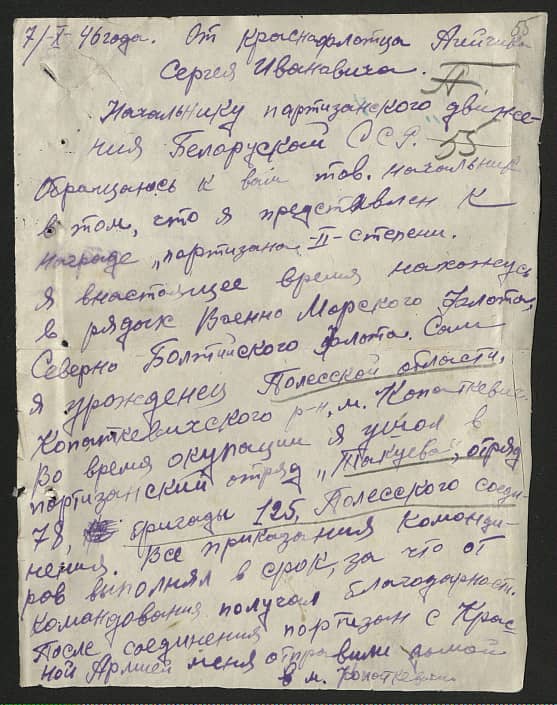 7/-I-46 года. От краснофлотца
Сергея Иванавича.
55
А
Начальнику партизанского движе-
55
ния Белоруской ССР.
Обращаюсь к вам тов. начальник
в том, что я представлен к
награде „партизана II-степени.
Я внастоящее время нахожусь
в рядах Военно Морского Флота,
Северно Болтийского флота. Сам
я урожденец Полесской области,
Копаткевичского р-н, м. Копаткевич.
Во время окупации я ушол в
партизанский отряд отряд
78, бригады 125, Полесского соеди-
нения. Все приказания команди-
ров выполнял в срок, за что от
командования получал благодарност.
После соединения партизан с Крас-
ной Армией меня отправили домой
в м. Копаткевич